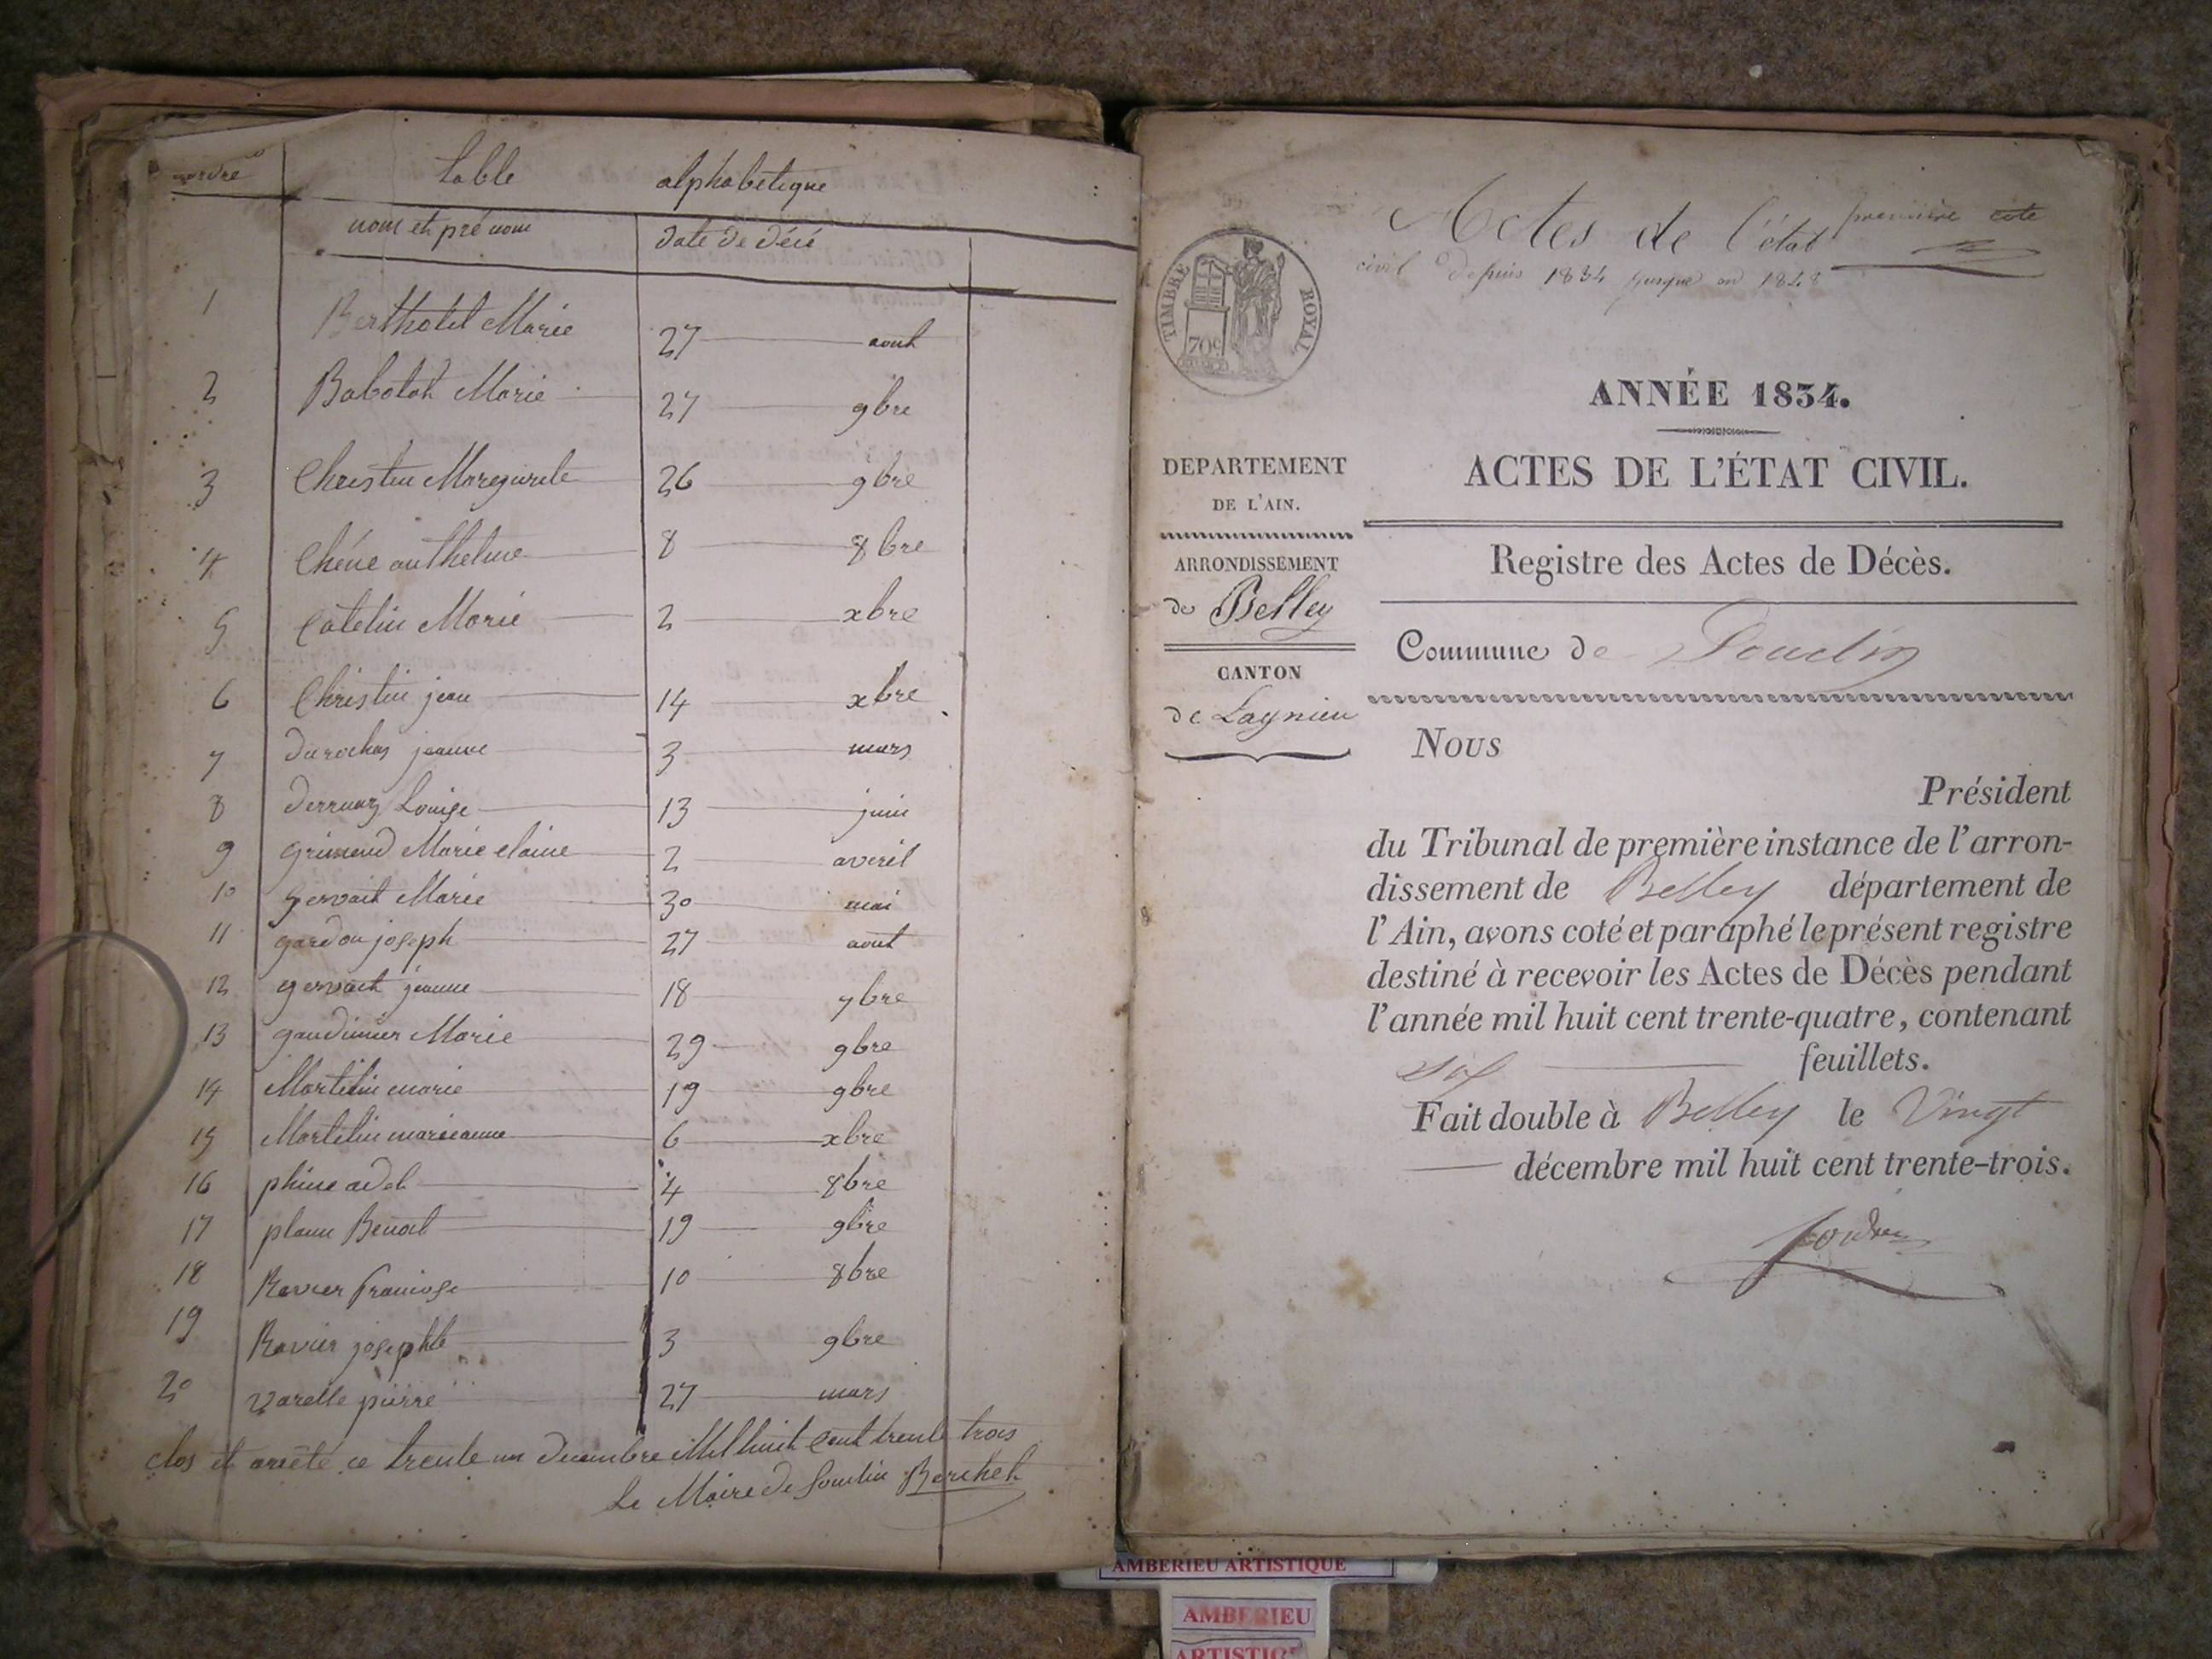 ordre
table alphabétique
nom et prénom date de décé
1 Bertholet Marie 27 aout
2 Babolat Marie 27 9bre
3 Christin Marguerite 26 9bre
4 Chéne anthelme 8 8bre
5 Catelin Marie 2 xbre
6 Christin jean 14 xbre
7 durochas jeanne 3 mars
8 Louise 13 juin
9 Marie claine 2 avril
10 gervait Marie 30 mai
11 gardon joseph 27 aout
12 gervait jeanne 18 7bre
13 gaudinier Marie 29 9bre
14 Martelin marie 19 9bre
15 Martelin marieanne 6 xbre
16 phine adel 4 8bre
17 Benoit 19 9bre
18 Ravier 10 8bre
19 Ravier josephte 3 9bre
20 varelle pierre 27 mars
clos et arrêté ce trente un decembre Mil huit Cent trente trois
Le Maire de Souclin Berchet
première cote
Actes de l'état
civil depuis 1834 jusque en 1848
TIMBRE ROYAL
70c
ANNÉE 1834.
DEPARTEMENT
DE L'AIN.
ARRONDISSEMENT
de Belley
CANTON
de Lagnieu
ACTES DE L'ÉTAT CIVIL.
Registre des Actes de Décès.
Commune de Souclin
Nous
Président
du Tribunal de première instance de l'arron-
dissement de Belley département de
l'Ain, avons coté et paraphé le présent registre
destiné à recevoir les Actes de Décès pendant
l'année mil huit cent trente-quatre, contenant
six feuillets.
Fait double à Belley le Vingt
décembre mil huit cent trente-trois.
AMBERIEU ARTISTIQUE
AMBERIEU
ARTISTIQUE